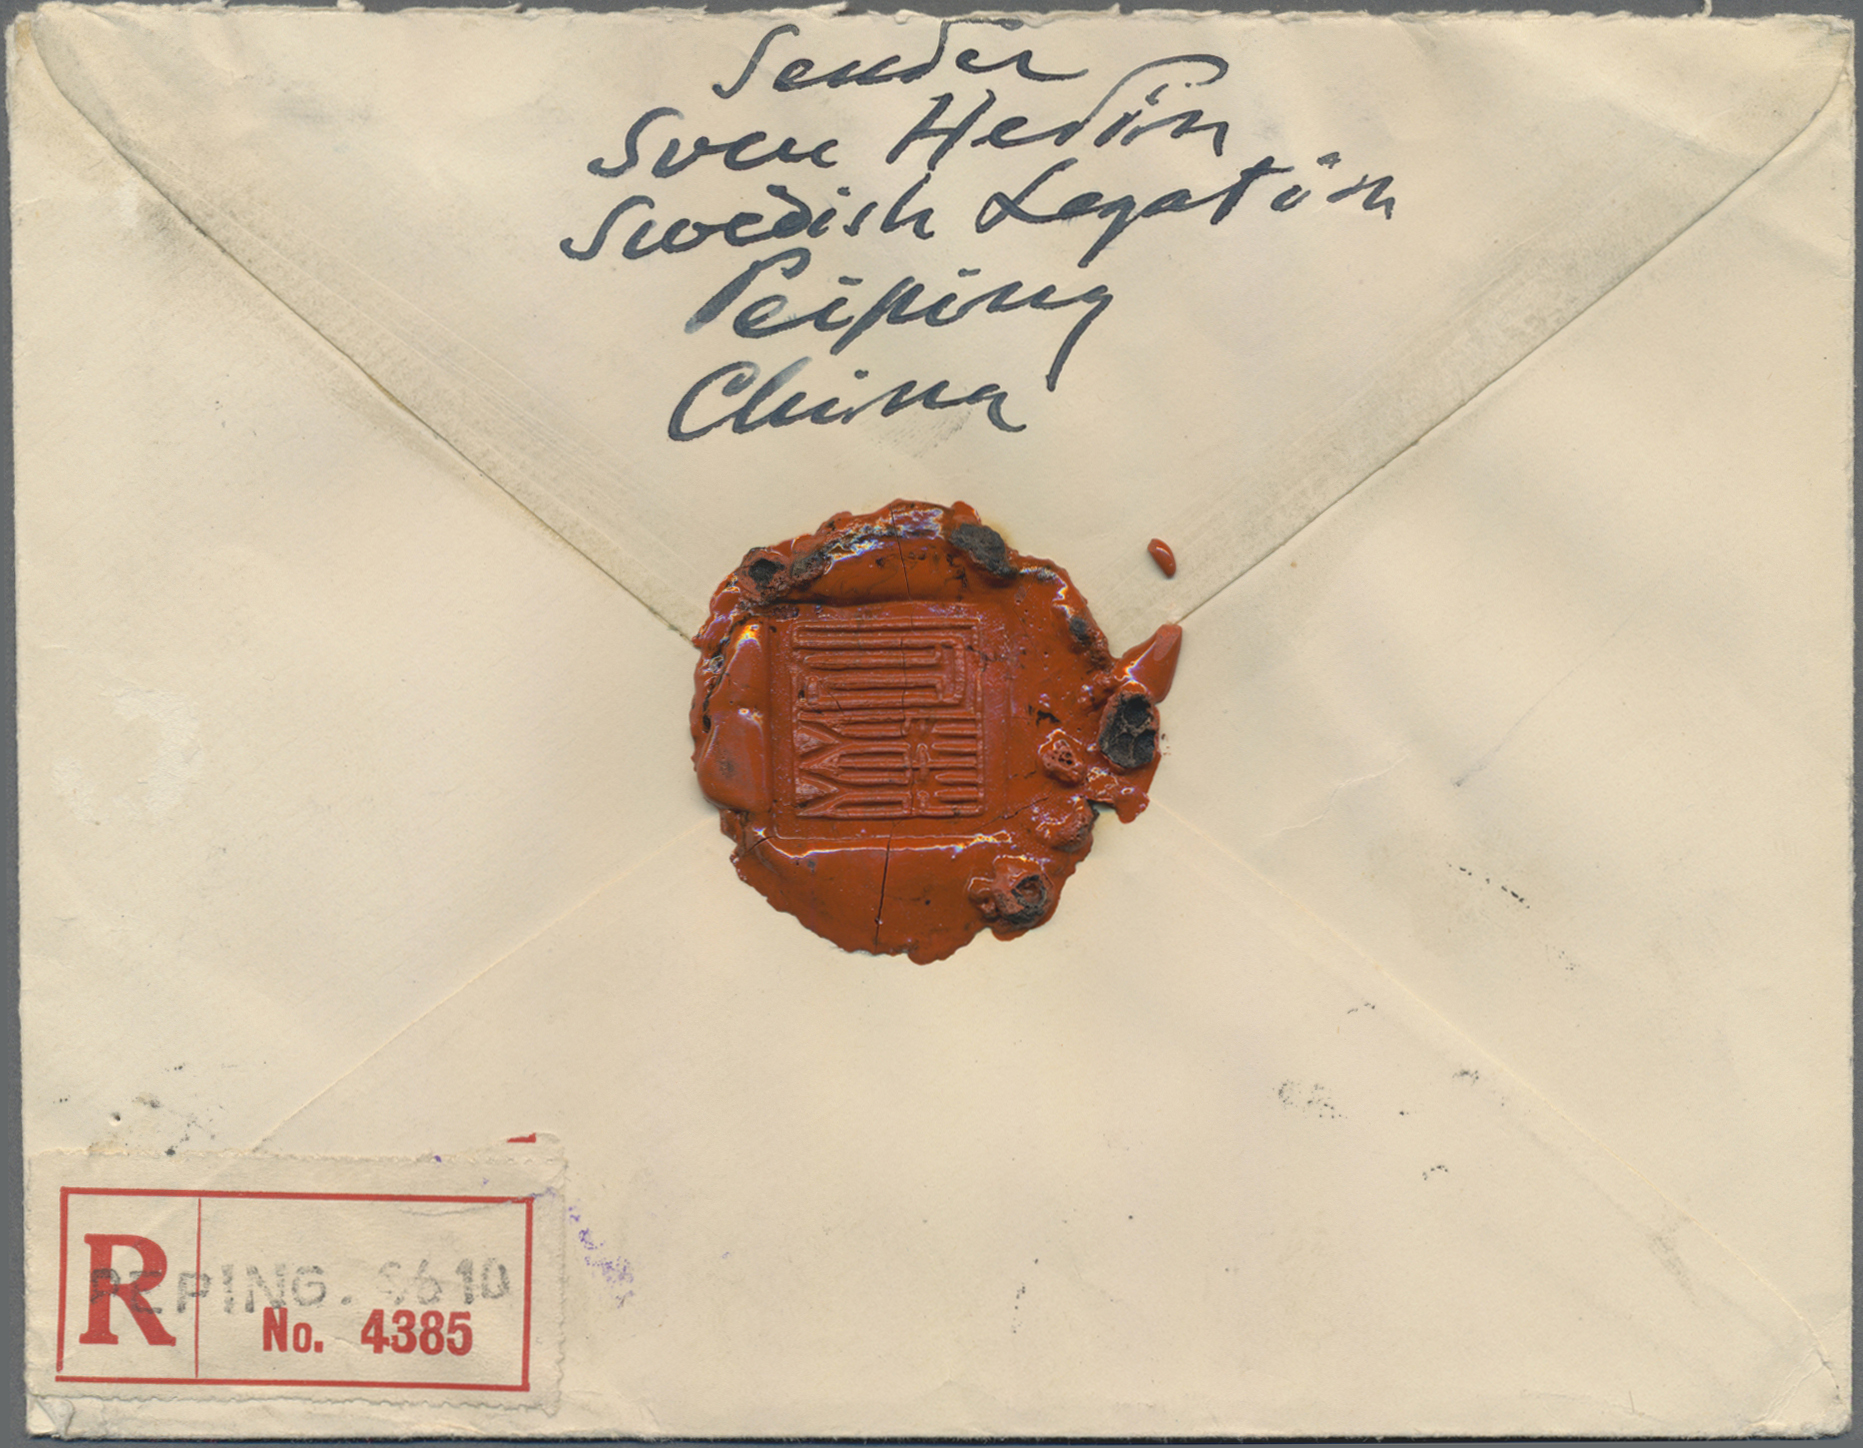 Sender
Sven Hedin
Swedish Legation
Peiping
China
R
PEPING. 9610
No. 4385